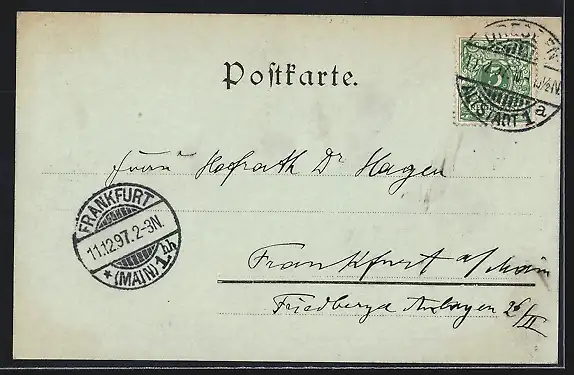 Postkarte.
DRESDEN
ALTSTADT 1
a
5
Herrn Hofrath Dr Hagen
FRANKFURT
11.12.97. 2-3N.
* (MAIN) 1. bh
Frankfurt a/Main
Friedberger Anlagen 26/II